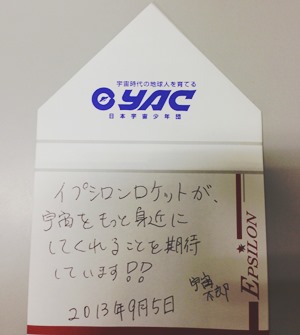 宇宙時代の地球人を育てる
YAC
日本宇宙少年団
イプシロンロケットが、
宇宙をもっと身近に
してくれることを期待
しています!!
宇宙
太郎
2013年9月5日
EPSILON